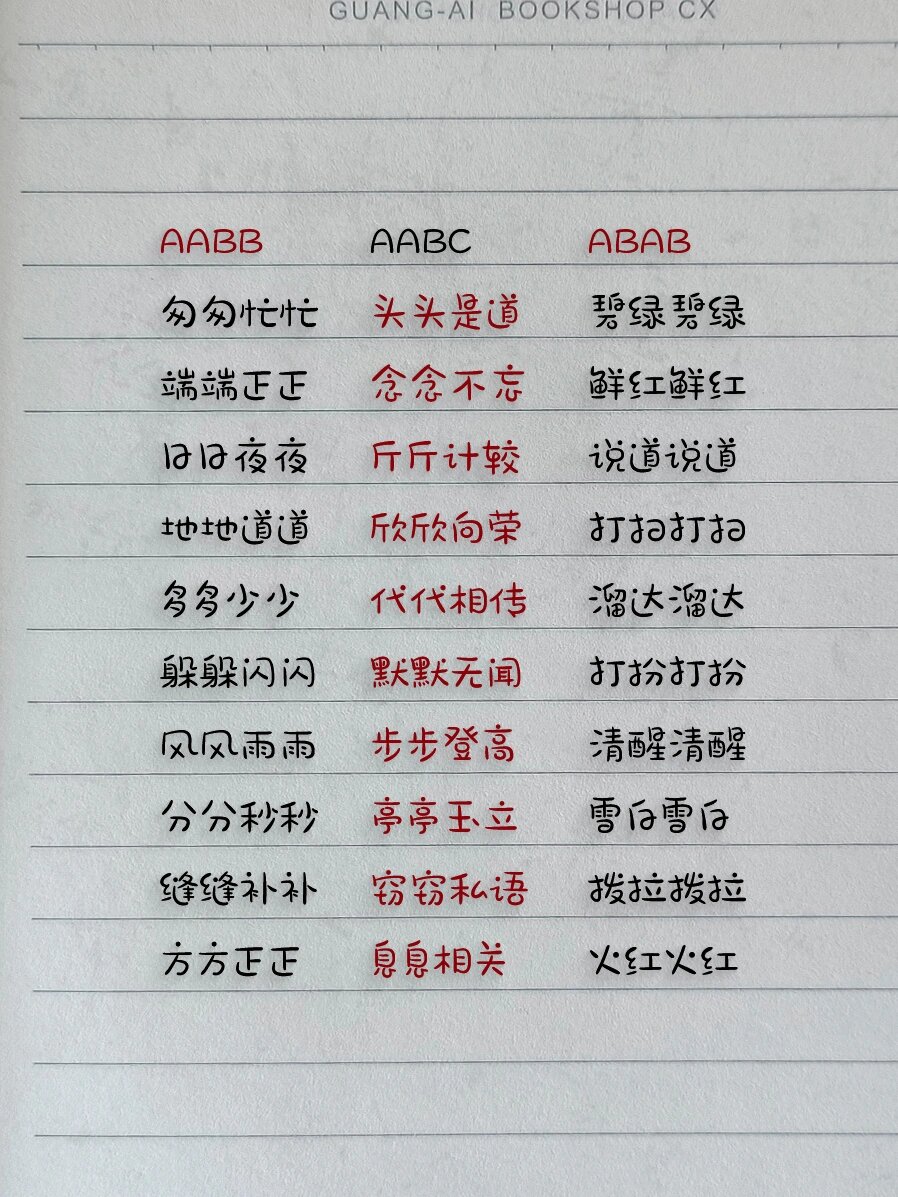 GUANG-AI BOOKSHOP CX
AABB AABC ABAB
匆匆忙忙 头头是道 碧绿碧绿
端端正正 念念不忘 鲜红鲜红
日日夜夜 斤斤计较 说道说道
地地道道 欣欣向荣 打扫打扫
多多少少 代代相传 溜达溜达
躲躲闪闪 默默无闻 打扮打扮
风风雨雨 步步登高 清醒清醒
分分秒秒 亭亭玉立 雪白雪白
缝缝补补 窃窃私语 拨拉拨拉
方方正正 息息相关 火红火红